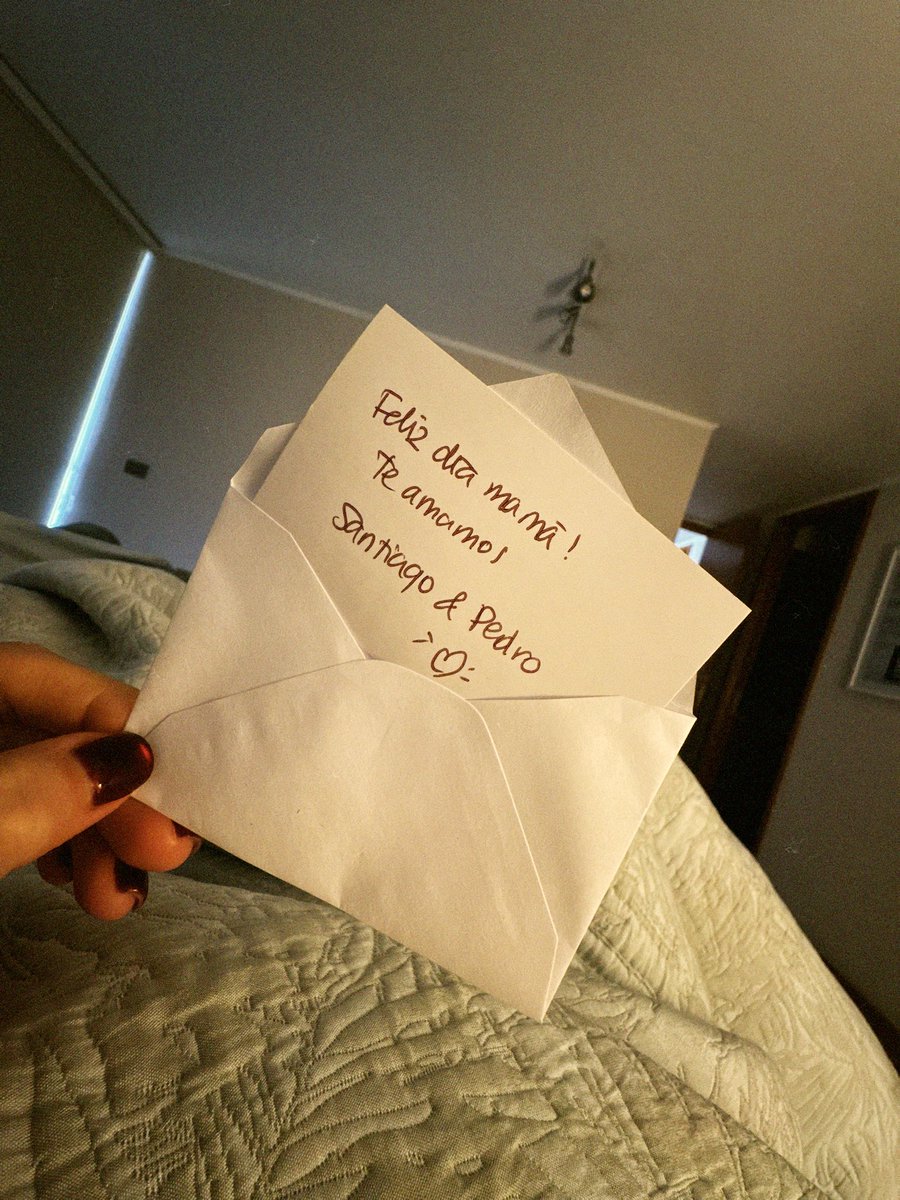 Feliz día mamá!
Te amamos
Santiago & Pedro